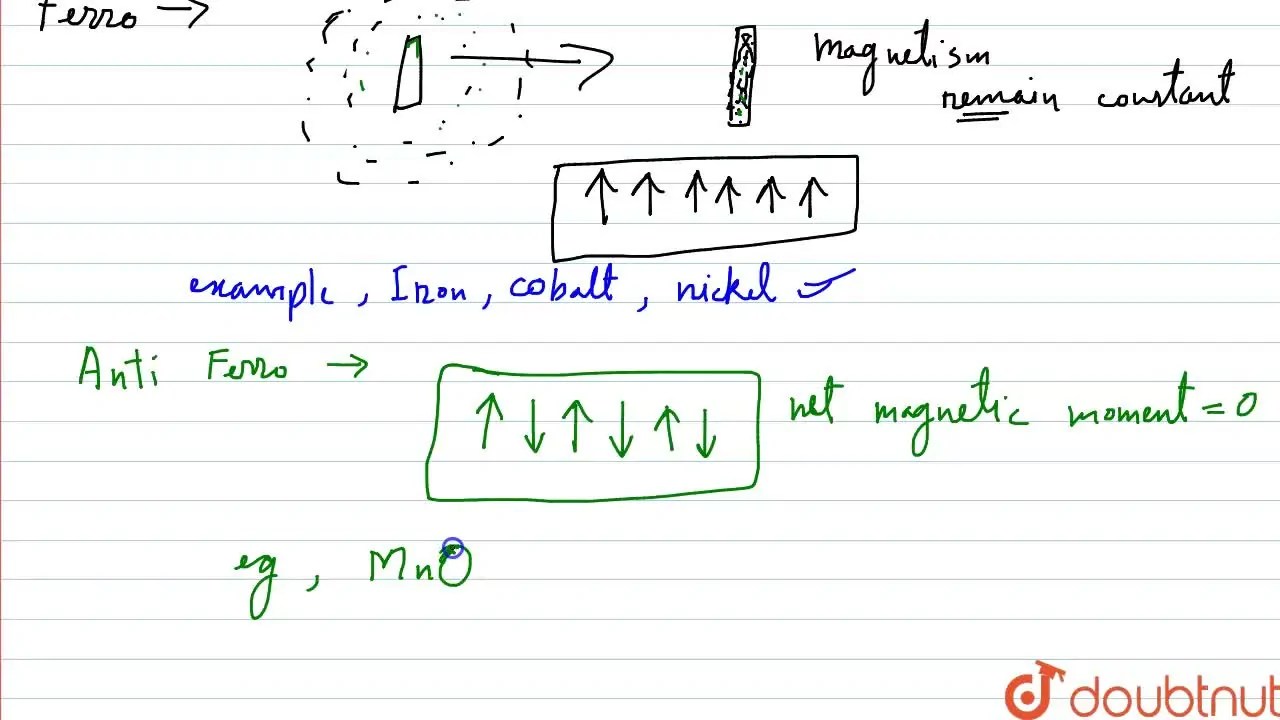 Ferro →
magnetism
remain constant
example, Iron, cobalt, nickel
Anti Ferro →
net magnetic moment = 0
eg, MnO
doubtnut